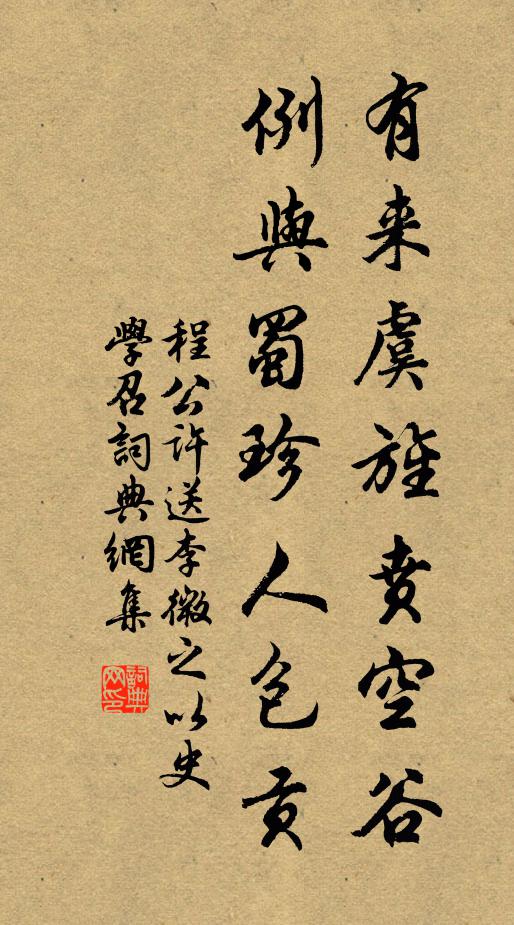 有来虞旌賁空谷
例與蜀珍人包貢
程公許送李微之以史
學召詞典網集
詞典
网印